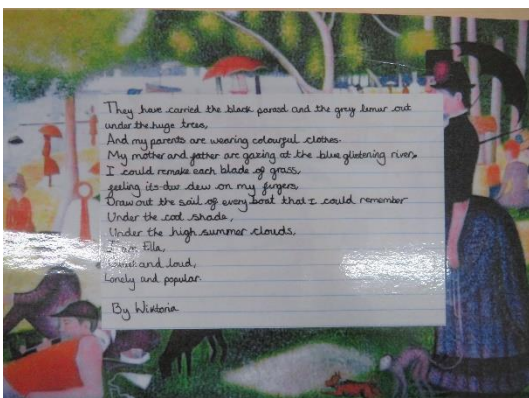 They have carried the black parasol and the grey lemur out
under the huge trees,
And my parents are wearing colourful clothes.
My mother and father are gazing at the blue glistening river,
I could remake each blade of grass,
feeling its dew on my fingers,
Draw out the sail of every boat that I could remember
Under the cool shade,
Under the high summer clouds,
Ella,
and loud,
Lonely and popular.
By Wiktoria